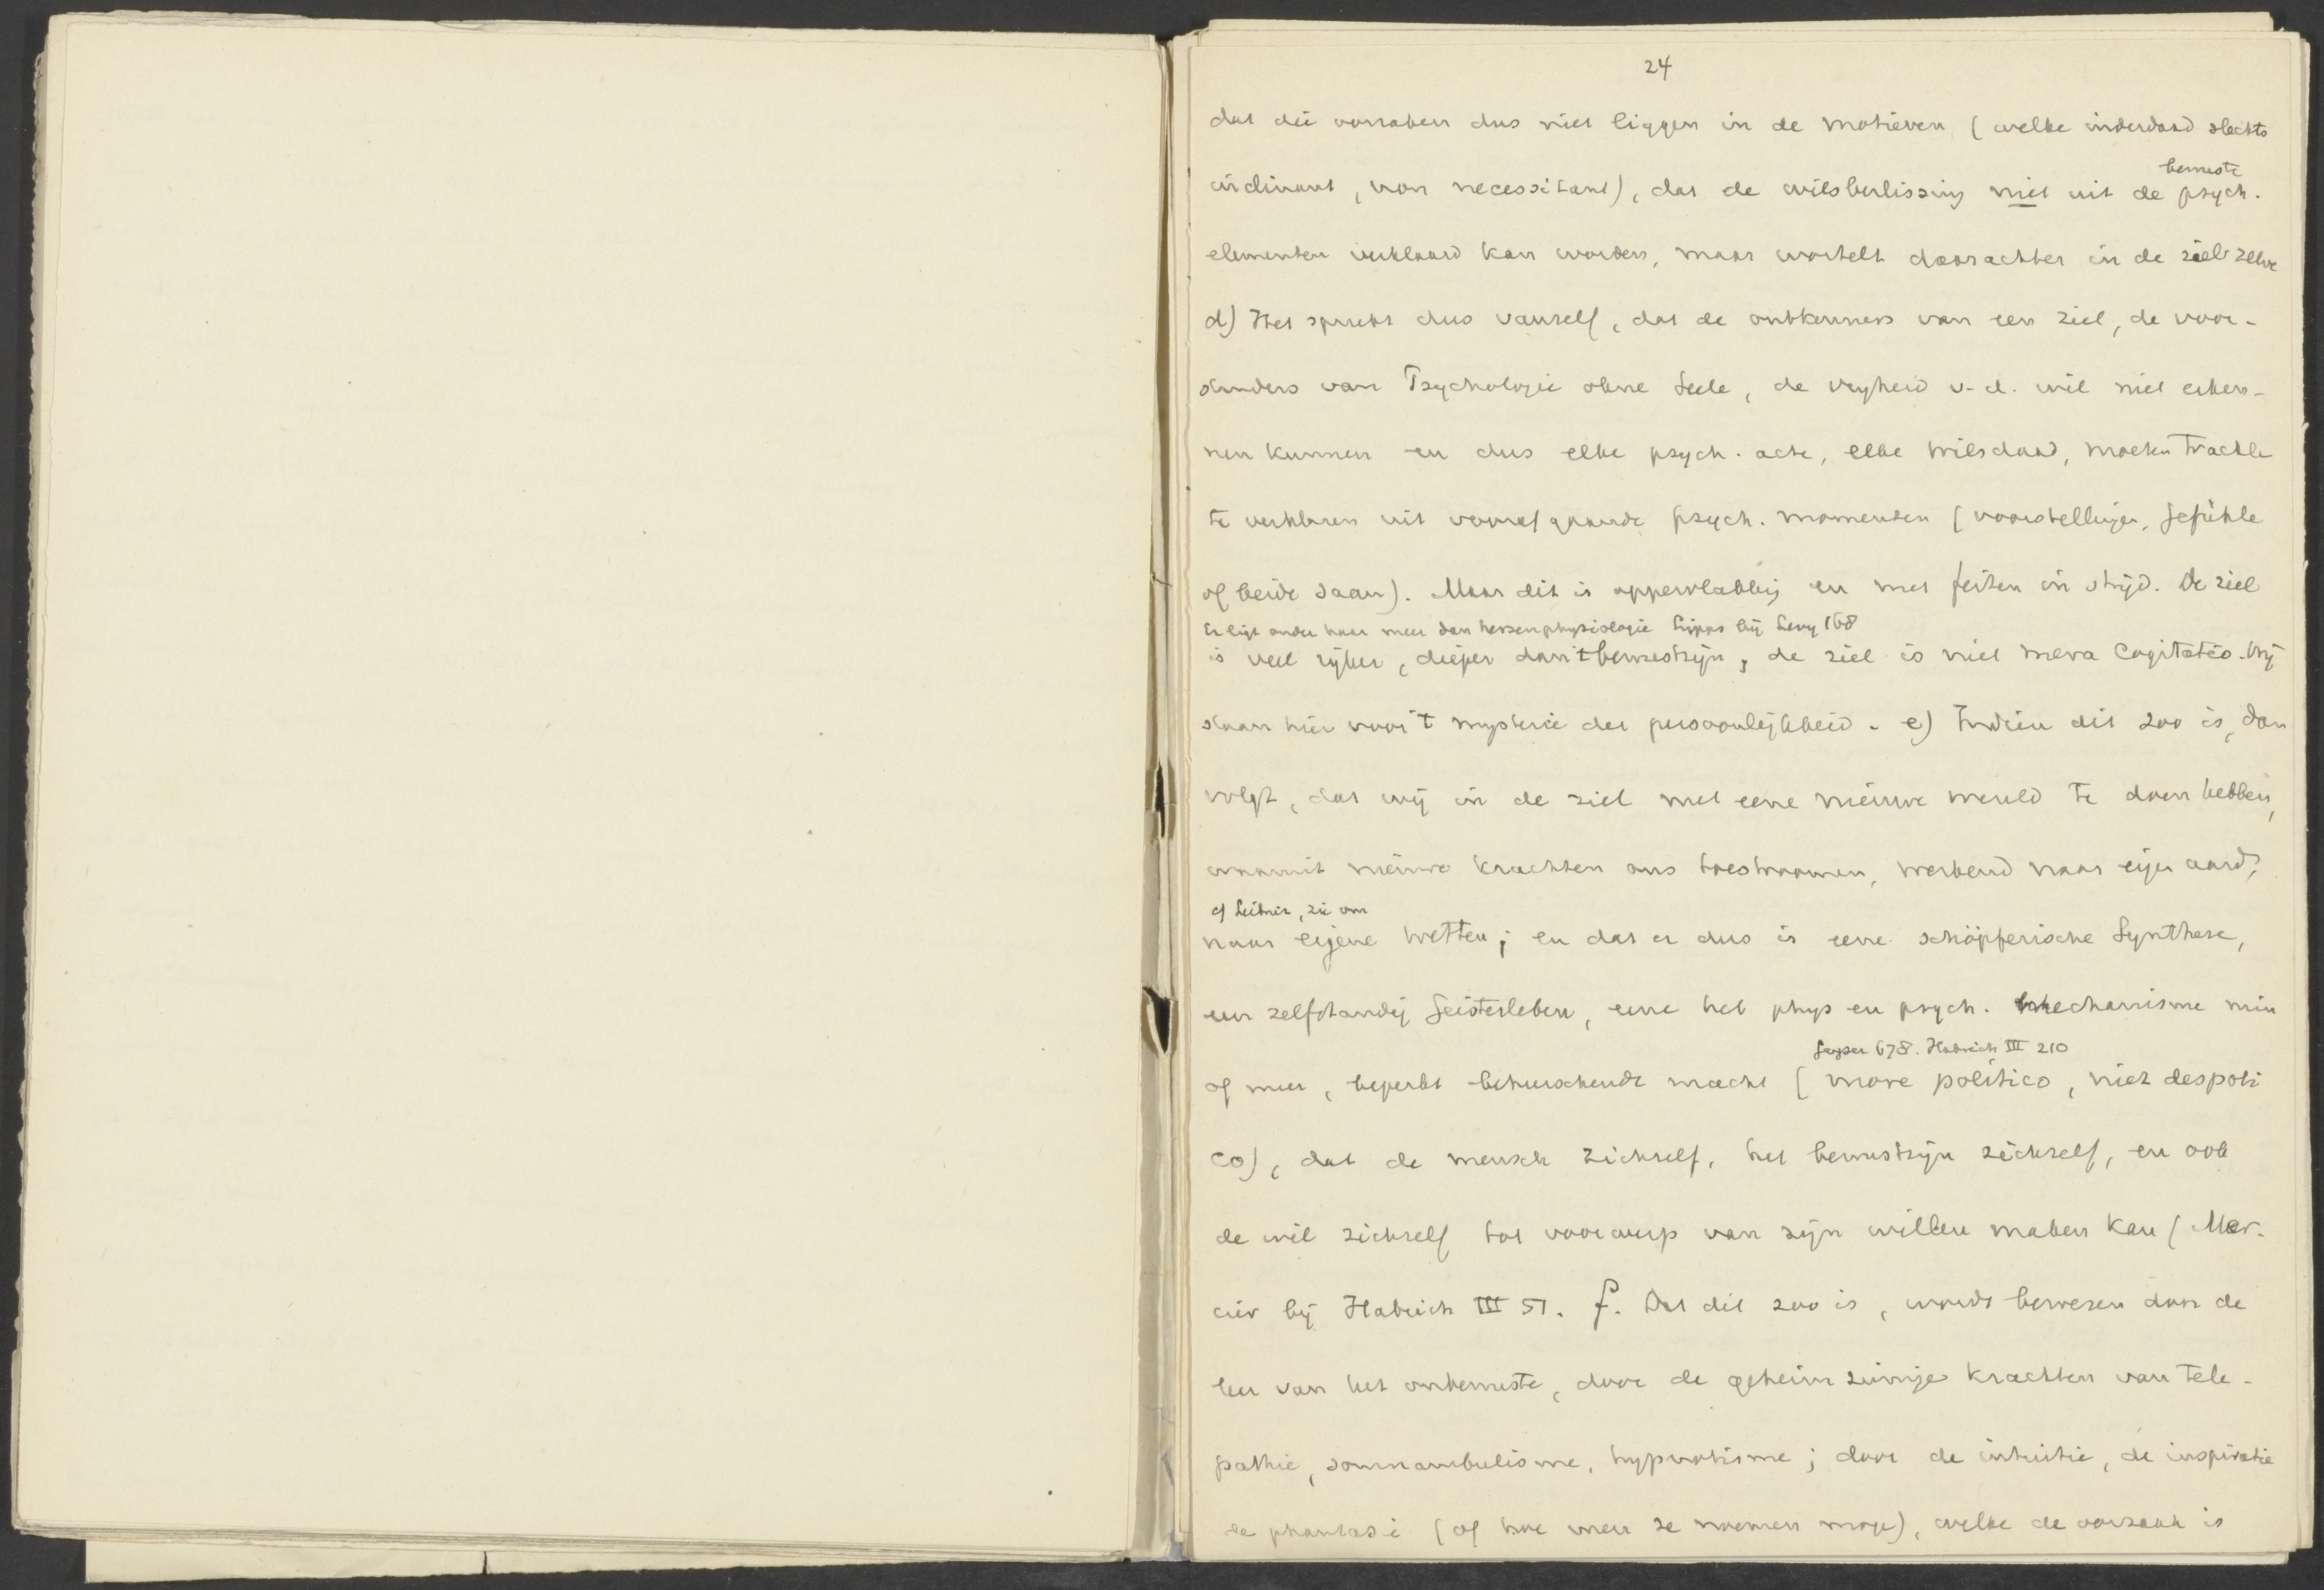 24
dat die oorzaken dus niet liggen in de motieven (welke inderdaad slechts
inclinant, non necessitant), dat de wilsbeslissing niet uit de psych.
bewuste
elementen verklaard kan worden, maar wortelt daarachter in de ziel zelve
d) Het spreekt dus vanzelf, dat de ontkenners van een ziel, de voor-
standers van Psychologie ohne Seele, de vrijheid v. d. wil niet erken-
nen kunnen en dus elke psych. acte, elke wilsdaad, moeten trachten
te verklaren uit voorafgaande psych. momenten (voorstellingen, Gefühle
of beide saam). Maar dit is oppervlakkig en met feiten in strijd. De ziel
Er ligt onder haar meer dan hersenphysiologie Lipps bij Levy 168
is veel rijker, dieper dan 't bewustzijn, de ziel is niet mera cogitatio. Wij
staan hier voor 't mysterie der persoonlijkheid. e) Indien dit zoo is, dan
volgt, dat wij in de ziel met eene nieuwe wereld te doen hebben,
waaruit nieuwe krachten ons toestroomen, werkend naar eigen aard,
cf Leibniz, zie om
naar eigene wetten; en dat er dus is eene schöpferische Synthese,
een zelfstandig Geistesleben, eene het phys en psych. mechanisme min
Geyser 678. Habrich III 210
of meer, beperkt beheerschende macht (more politico, niet despoti
co), dat de mensch zichzelf, het bewustzijn zichzelf, en ook
de wil zichzelf tot voorwerp van zijn willen maken kan (Mer-
cier bij Habrich III 51. f. Dat dit zoo is, wordt bewezen door de
leer van het onbewuste, door de geheimzinnige krachten van tele-
pathie, somnambulisme, hypnotisme; door de intuitie, de inspiratie
de phantasie (of hoe men ze noemen moge), welke de oorzaak is